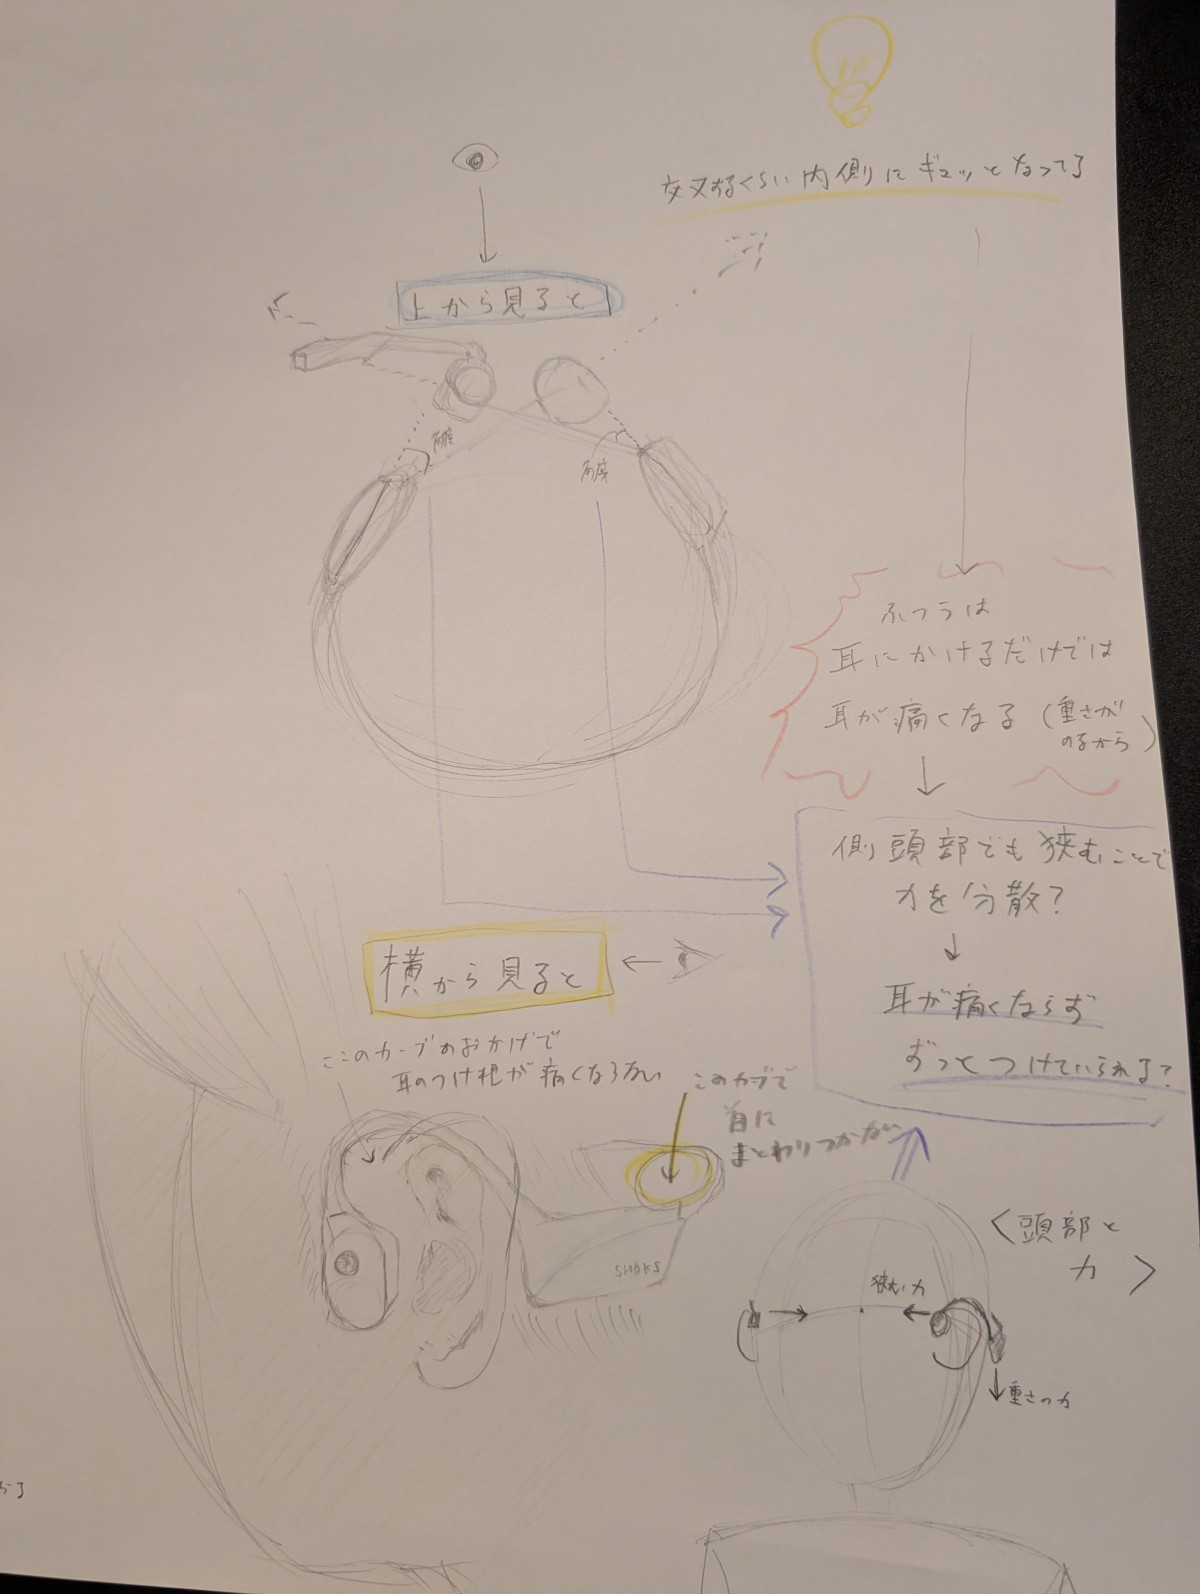 交叉するくらい内側にギュッとなってる
上から見ると
角度
角度
ふつうは
耳にかけるだけでは
耳が痛くなる(重さが
のるから)
側頭部でも挟むことで
力を分散?
耳が痛くならず
ずっとつけていられる?
横から見ると
ここのカーブのおかげで
耳のつけ根が痛くならない
このカブで
首に
まとわりつかない
SHOKS
<頭部と
力>
挟む力
重さの力